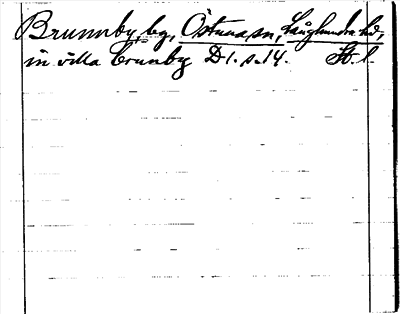 Brunnby, by, Östuna sn, Långhundra hd,
in villa brunby D 1. s. 14. St. l.